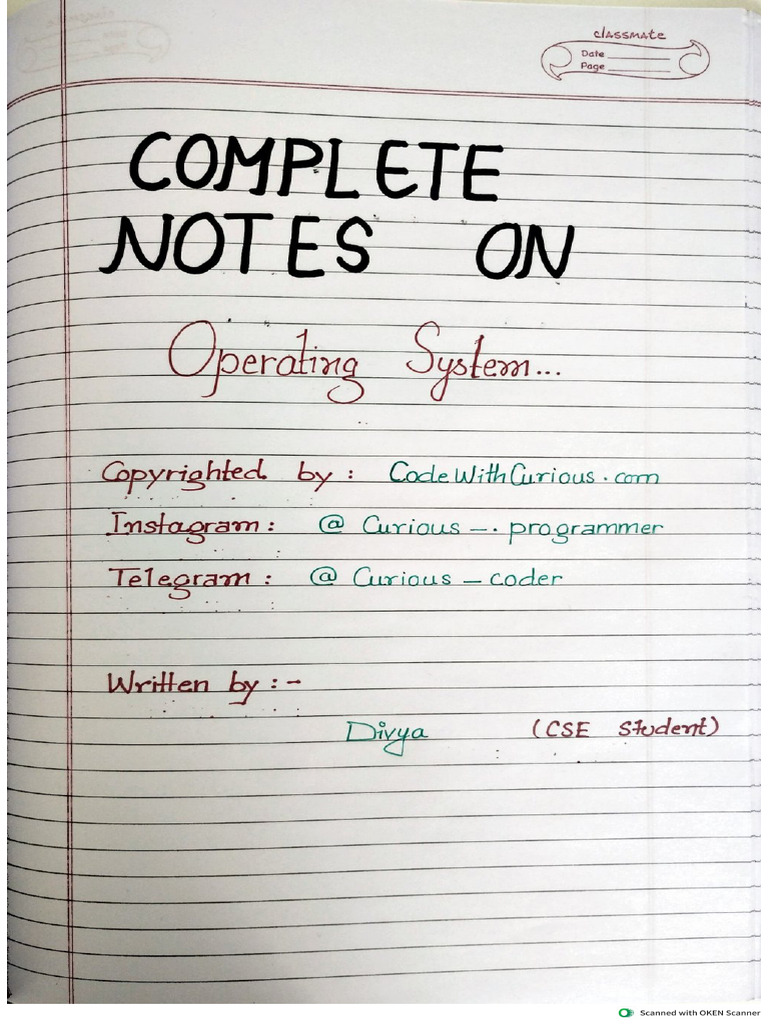 classmate
Date
Page
COMPLETE
NOTES ON
Operating System...
Copyrighted by : CodeWithCurious.com
Instagram : @ Curious _. programmer
Telegram : @ Curious _ coder
Written by :-
Divya (CSE Student)
Scanned with OKEN Scanner